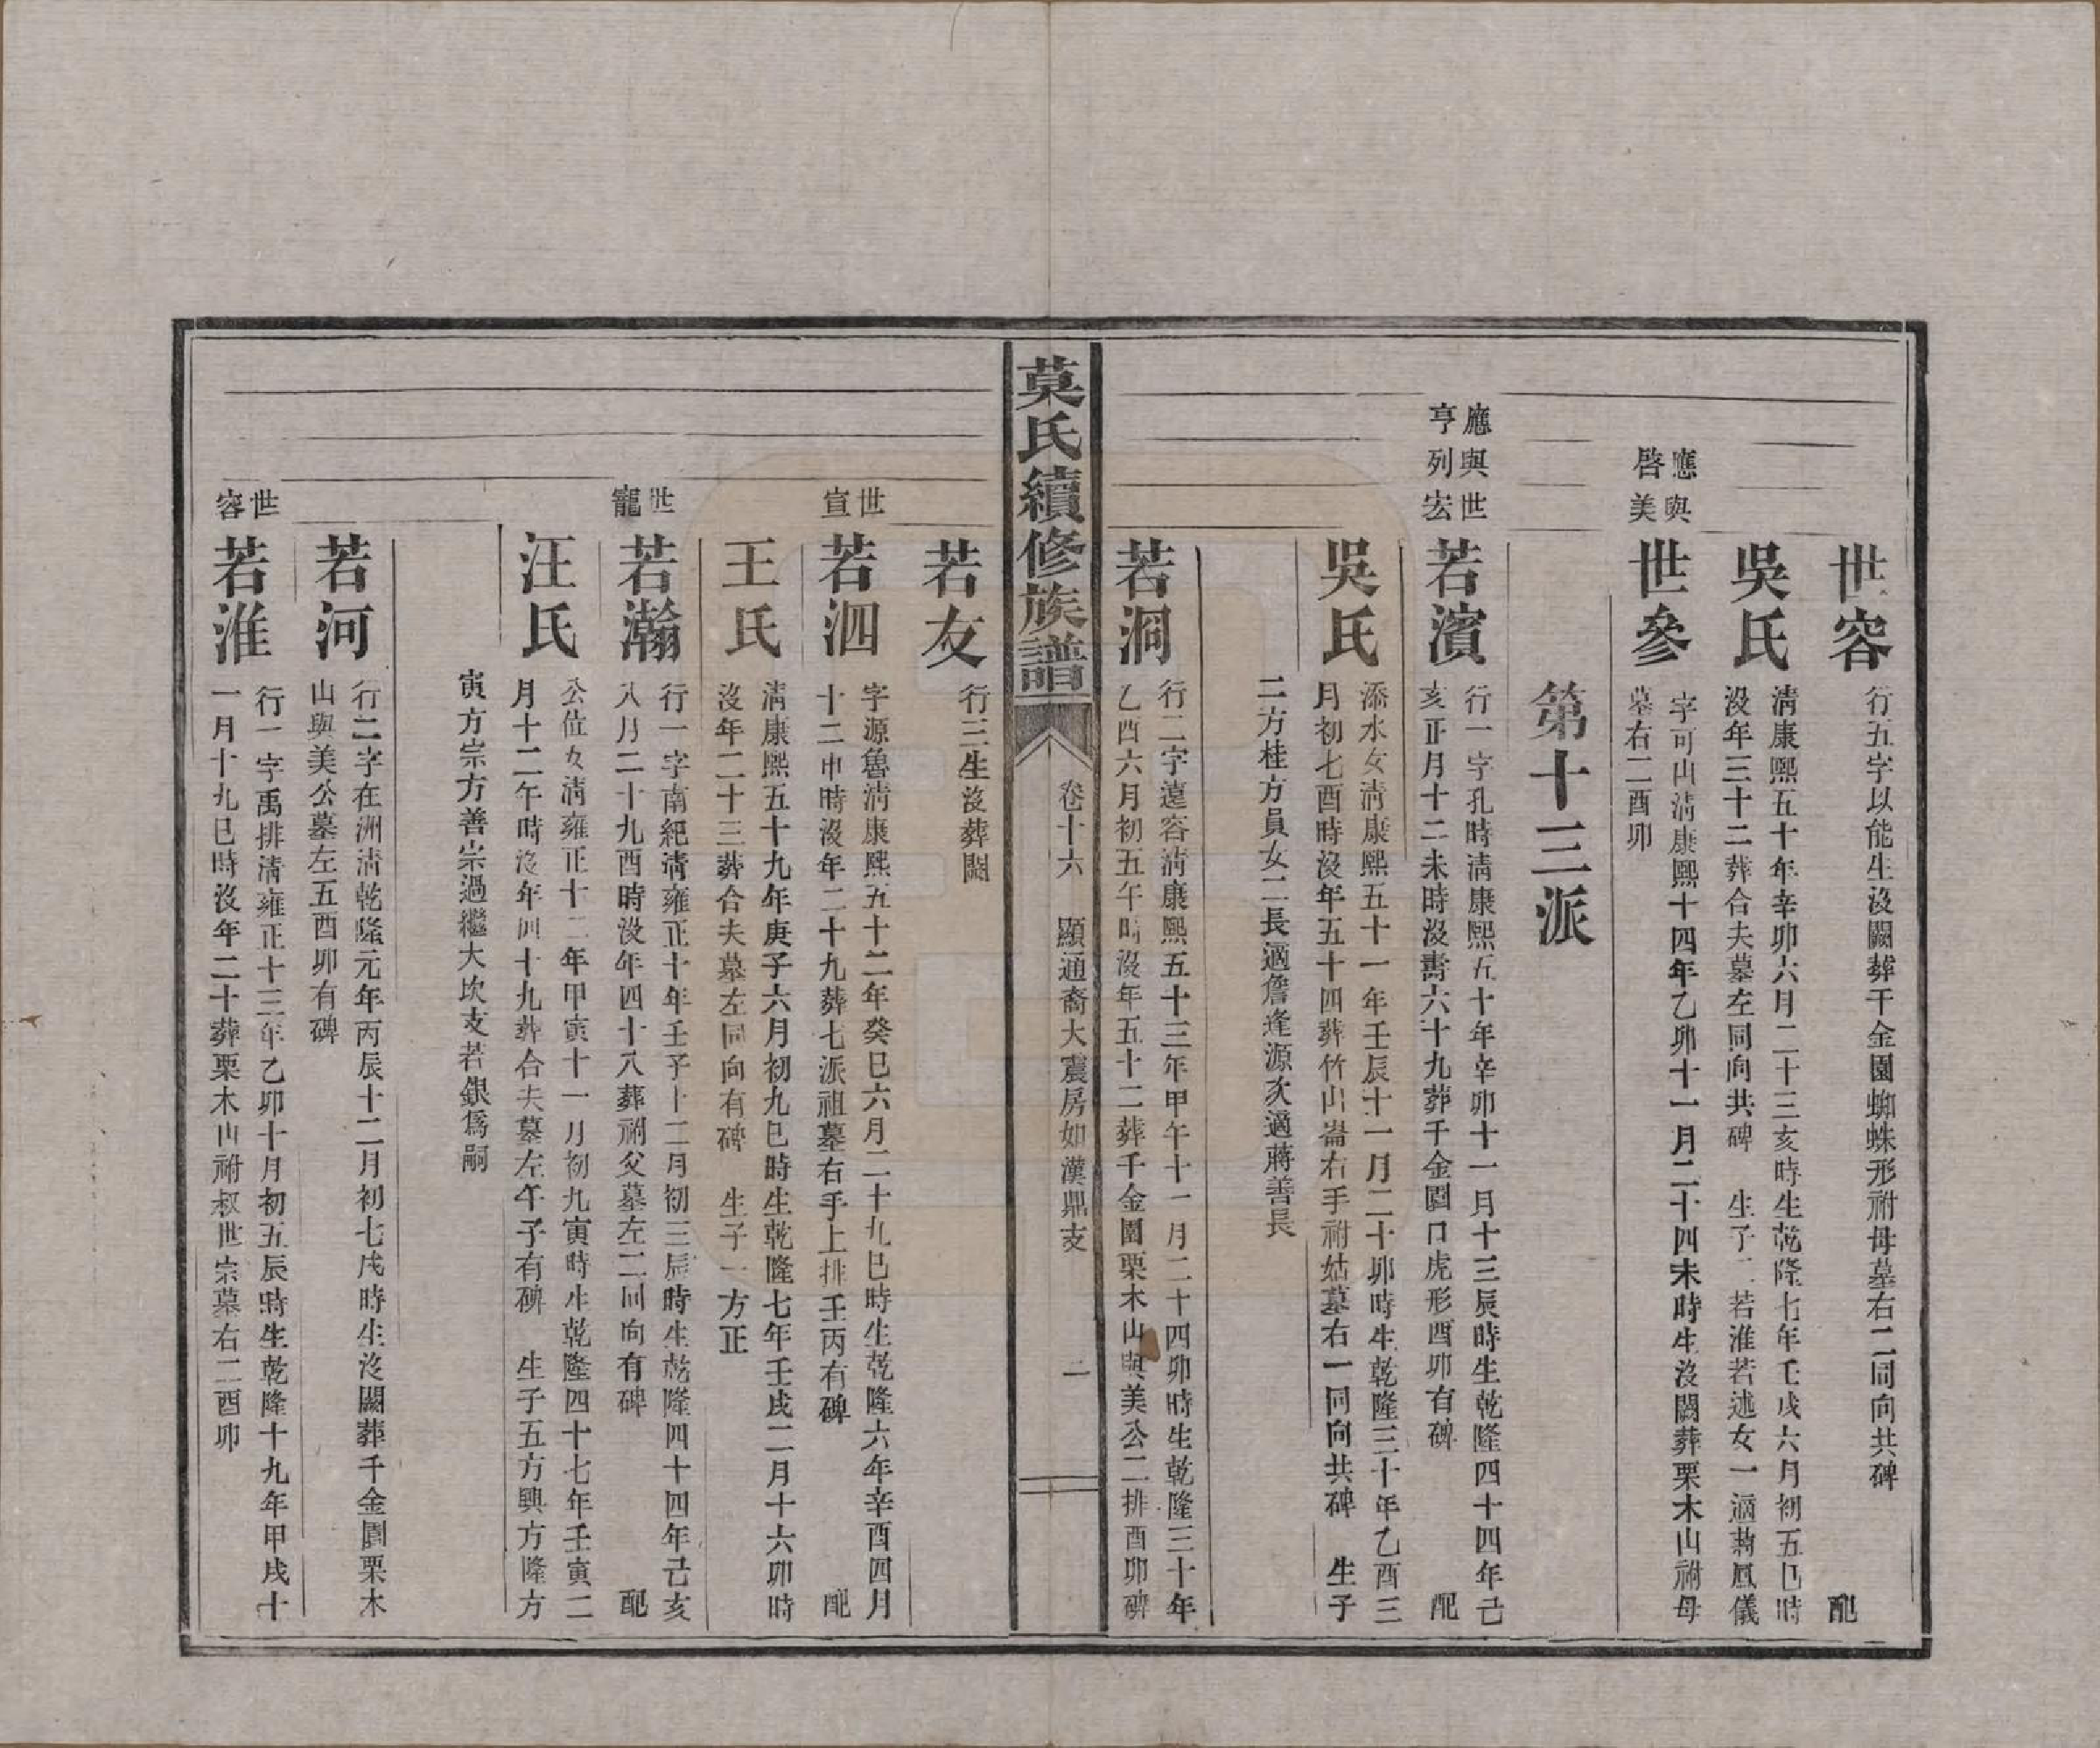 世容
行五字以能生沒闕葬千金園蜘蛛形祔母墓右二同向共碑
配
吳氏
淸康熙五十年辛卯六月二十三亥時生乾隆七年壬戌六月初五巳時
沒年三十二葬合夫墓左同向共碑 生子二若淮若述女一適蔣鳳儀
應與
啓美
世參
字可山淸康熙十四年乙卯十一月二十四未時生沒闕葬栗木山祔母
墓右二酉卯
第十三派
應與世
亨列宏
若濱
行一字孔時淸康熙五十年辛卯十一月十三辰時生乾隆四十四年己
亥正月十二未時沒壽六十九葬千金園口虎形酉卯有碑 配
吳氏
添水女淸康熙五十一年壬辰十一月二十卯時生乾隆三十年乙酉三
月初七酉時沒年五十四葬竹山崙右手祔姑墓右一同向共碑 生子
二方桂方員女二長適詹逢源次適蔣善長
若洞
行二字遠容淸康熙五十三年甲午十一月二十四卯時生乾隆三十年
乙酉六月初五午時沒年五十二葬千金園栗木山與美公二排酉卯碑
莫氏續修族譜
卷十六 顯通裔大震房如漢鼎支
二
若友
行三生沒葬闕
世
宣
若泗
字源魯淸康熙五十二年癸巳六月二十九巳時生乾隆六年辛酉四月
十二申時沒年二十九葬七派祖墓右手上排壬丙有碑 配
王氏
淸康熙五十九年庚子六月初九巳時生乾隆七年壬戌二月十六卯時
沒年二十三葬合夫墓左同向有碑 生子一方正
世
寵
若瀚
行一字南紀淸雍正十年壬子十二月初三辰時生乾隆四十四年己亥
八月二十九酉時沒年四十八葬祔父墓左二同向有碑 配
汪氏
公位女淸雍正十二年甲寅十一月初九寅時生乾隆四十七年壬寅二
月十二午時沒年四十九葬合夫墓左午子有碑 生子五方興方隆方
寅方宗方善宗過繼大坎支若銀爲嗣
若河
行二字在洲淸乾隆元年丙辰十二月初七戌時生沒闕葬千金園栗木
山與美公墓左五酉卯有碑
世
容
若淮
行一字禹排淸雍正十三年乙卯十月初五辰時生乾隆十九年甲戌十
一月十九巳時沒年二十葬栗木山祔叔世宗墓右二酉卯